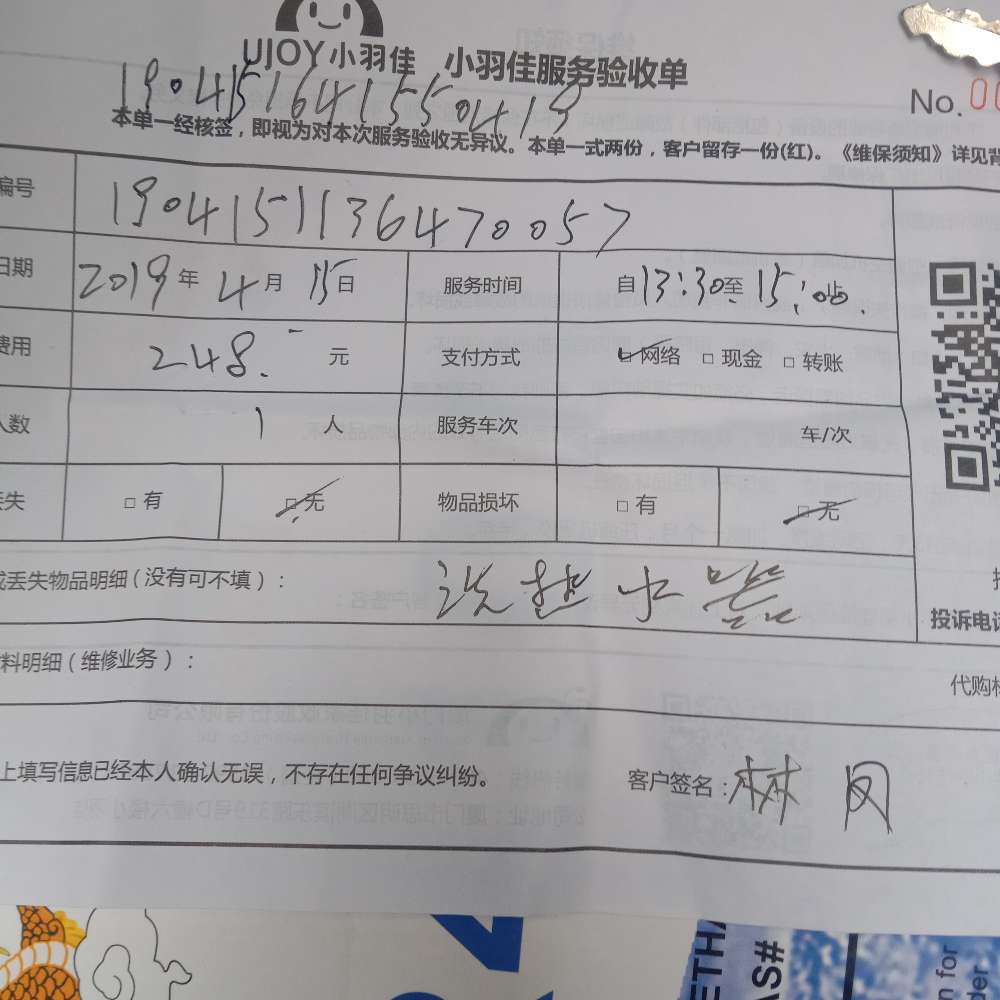 UJOY小羽佳 小羽佳服务验收单
No. 00
1904151641550419
本单一经核签，即视为对本次服务验收无异议。本单一式两份，客户留存一份(红)。《维保须知》详见背
编号 1904151136470057
日期 2019年 4月 15日 服务时间 自13:30至 15:00止
费用 248.- 元 支付方式 ☑网络 □现金 □转账
人数 1 人 服务车次 车/次
丢失 □有 ☑无 物品损坏 □有 ☑无
或丢失物品明细（没有可不填）：
投诉电话
料明细（维修业务）：
代购材
上填写信息已经本人确认无误，不存在任何争议纠纷。 客户签名：林凤
ETHA
AS#
n for
der